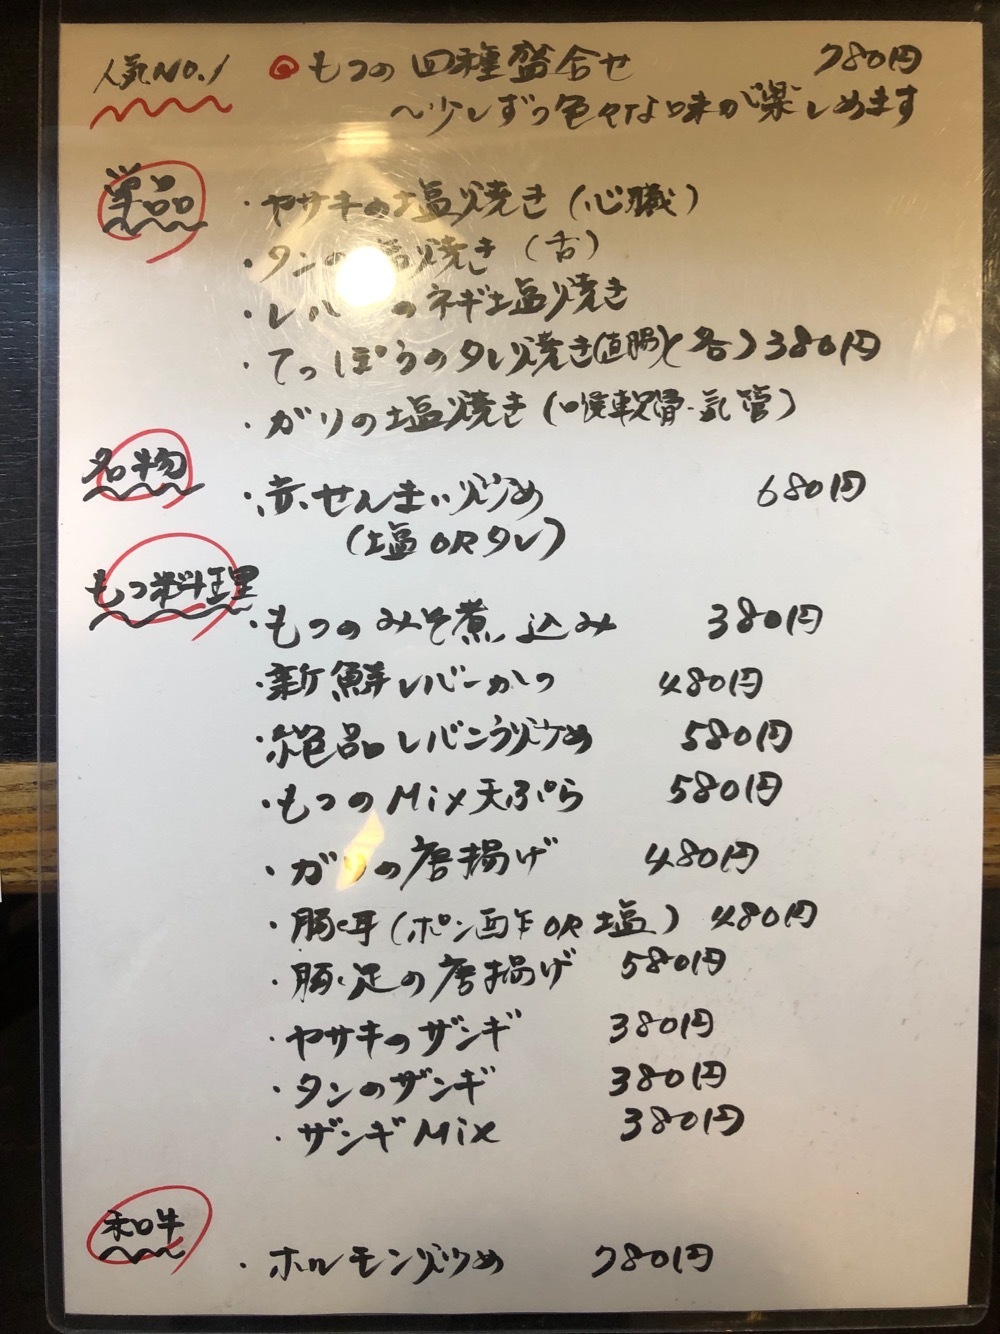 人気NO.1 ◎もつの四種盛合せ 780円
〜少しずつ色々な味が楽しめます
単品
・ヤサキの塩焼き(心臓)
・タンの塩焼き(舌)
・レバーのネギ塩焼き
・てっぽうのタレ焼き(直腸) 各 380円
・ガリの塩焼き(喉軟骨・気管)
名物
・赤せんまい炒め 680円
(塩ORタレ)
もつ料理
・もつのみそ煮込み 380円
・新鮮レバーかつ 480円
・絶品レバニラ炒め 580円
・もつのMix天ぷら 580円
・ガリの唐揚げ 480円
・豚耳(ポン酢OR塩) 480円
・豚足の唐揚げ 580円
・ヤサキのザンギ 380円
・タンのザンギ 380円
・ザンギMix 380円
和牛
・ホルモン炒め 780円